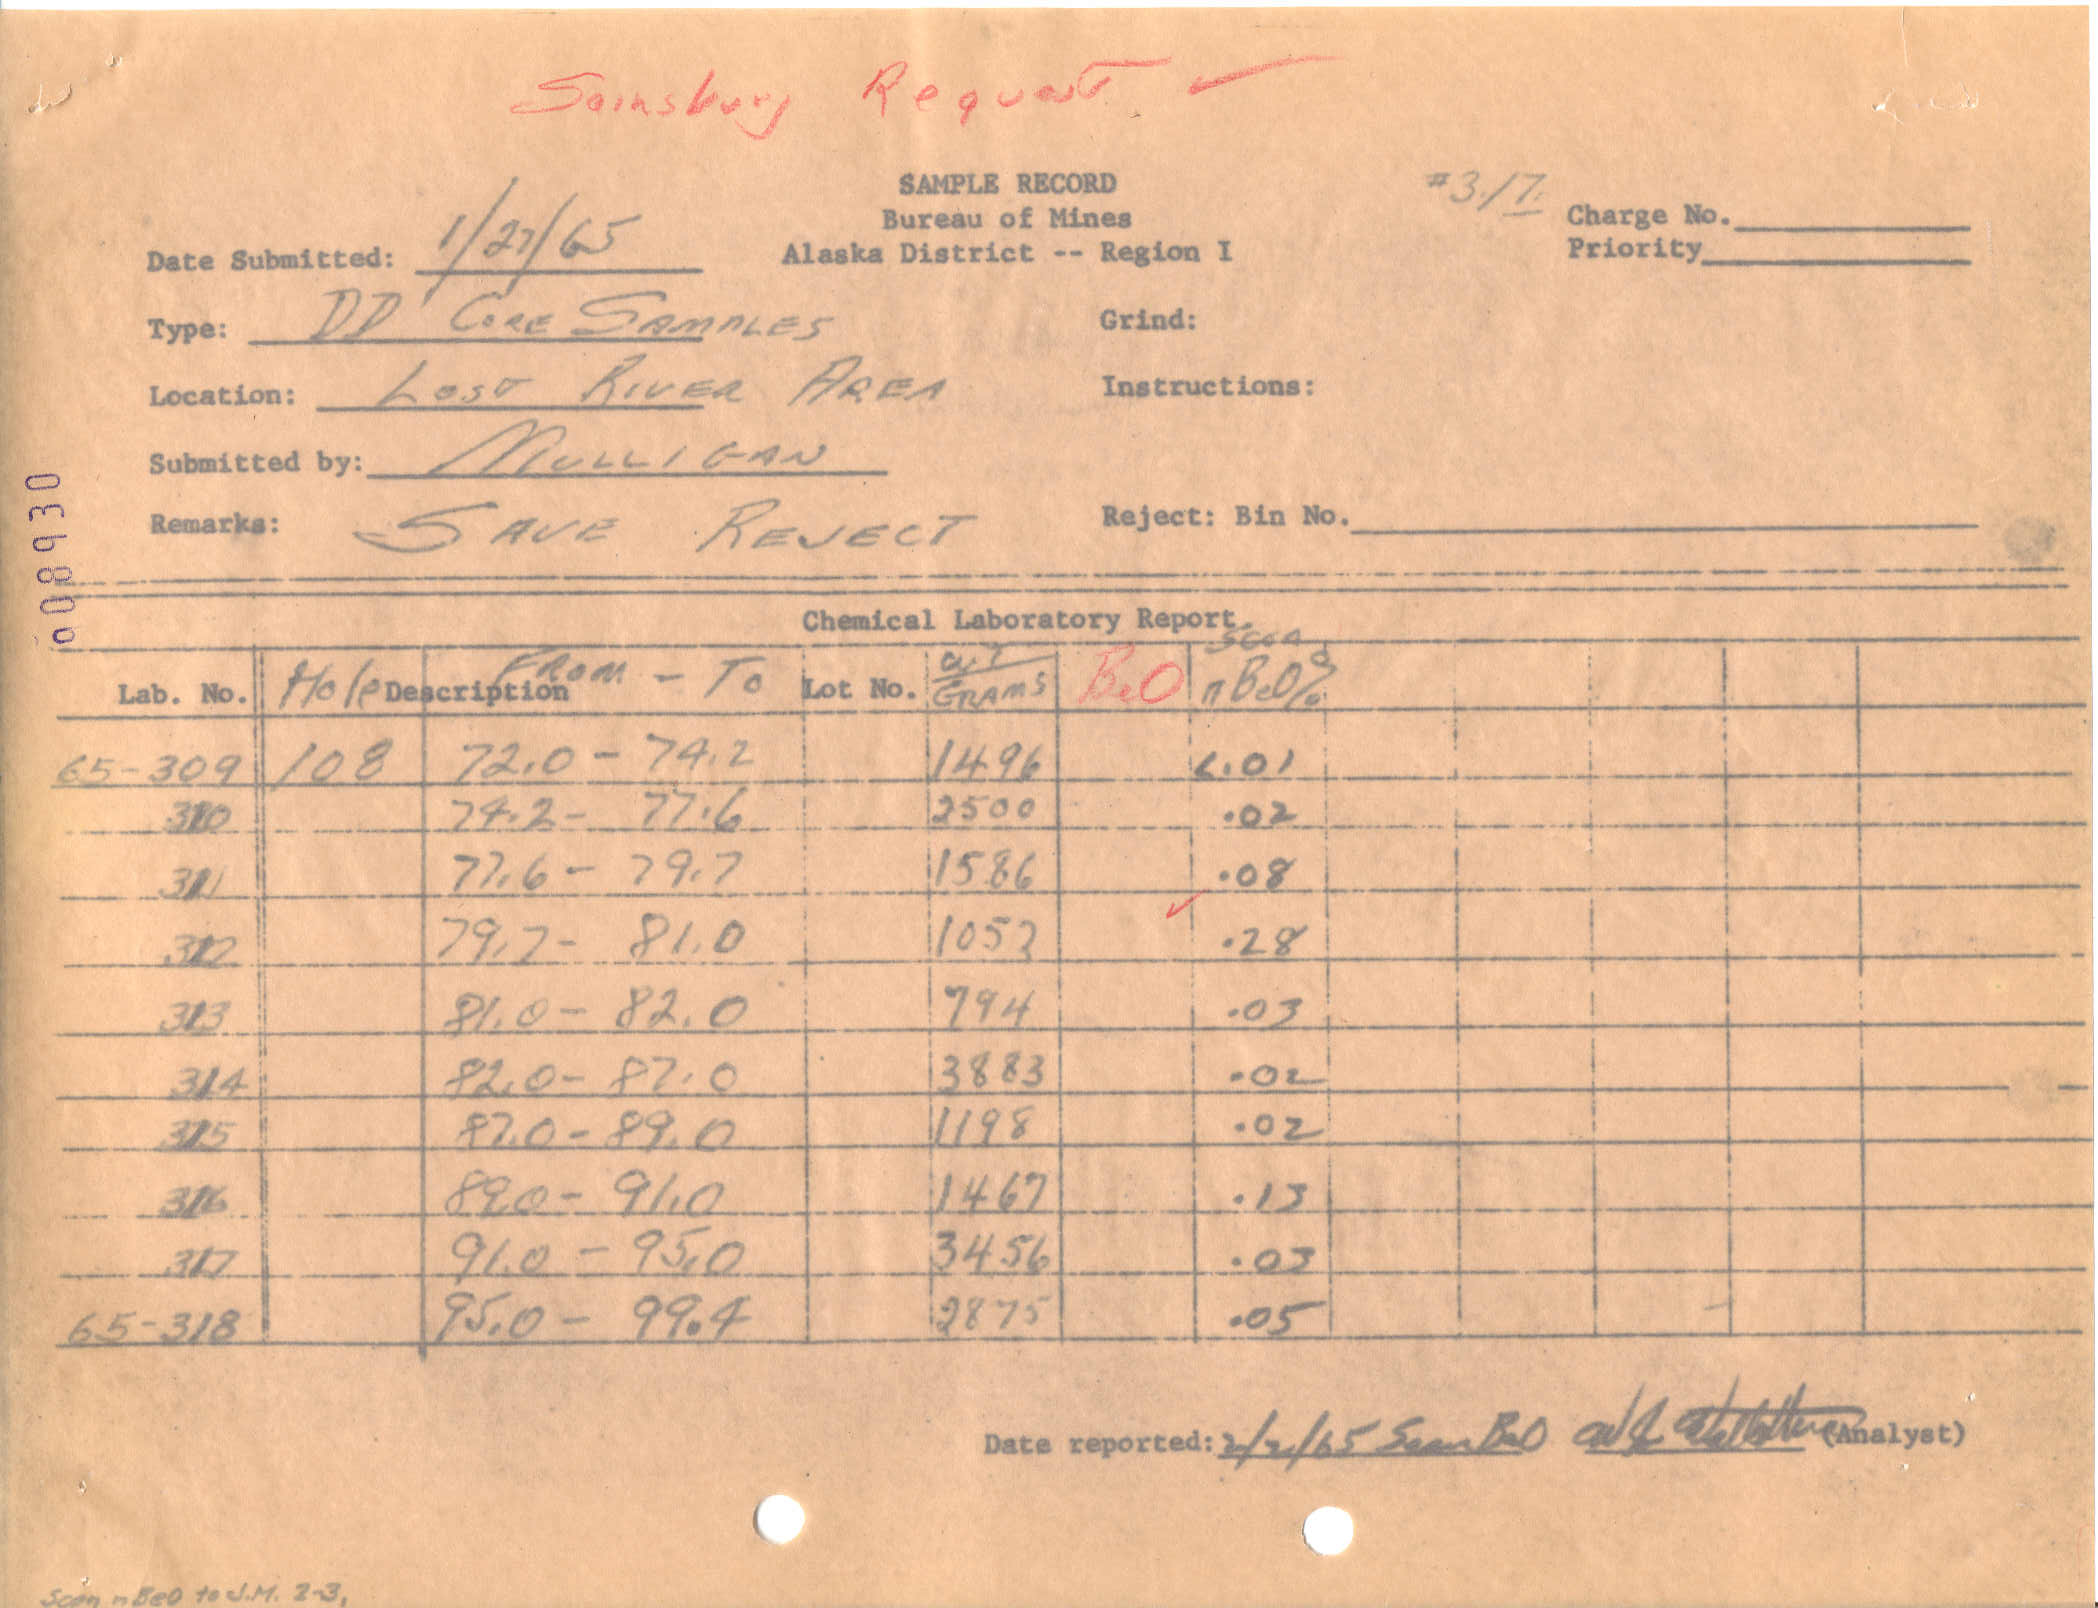 Sainsbury Request ✓
SAMPLE RECORD
Bureau of Mines
Alaska District -- Region I
#3.17.
Charge No.
Priority
Date Submitted: 1/27/65
Type: DD Core Samples
Grind:
Location: Lost River Area
Instructions:
Submitted by: Mulligan
Remarks: Save Reject
Reject: Bin No.
008930
Chemical Laboratory Report
Lab. No. Hole Description From - To Lot No. wt Grams BeO Scan nBeO%
65-309 108 72.0 - 74.2 1496 <.01
310 74.2 - 77.6 2500 .02
311 77.6 - 79.7 1586 .08
312 79.7 - 81.0 1052 ✓ .28
313 81.0 - 82.0 794 .03
314 82.0 - 87.0 3883 .02
315 87.0 - 89.0 1198 .02
316 89.0 - 91.0 1467 .13
317 91.0 - 95.0 3456 .03
65-318 95.0 - 99.4 2875 .05
Date reported: 2/2/65 Scan BeO (Analyst)
Scan nBeO to J.M. 2-3,